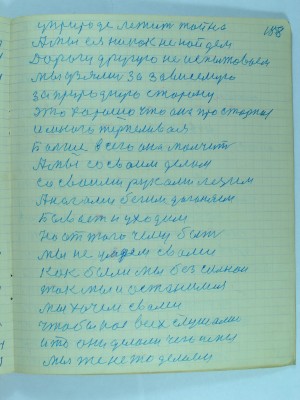 у природе лежит тайна 158
А мы ея никак не найдем
Дороги другую не
мы взяли за зависемую
за природную сторону
это хорошо что она просторная
и много терпеливая
Больше всего она молчит
А мы со своим делом
со своими руками лезим
А ногами бегим догоняем
Бывает и уходим
но от того чему быть
мы не уйдем свами
Как были мы без сильной
так мы и остаимся
мы хочем свами
чтобы нас всех слушали
и то они делали чего
мы же не то делаем